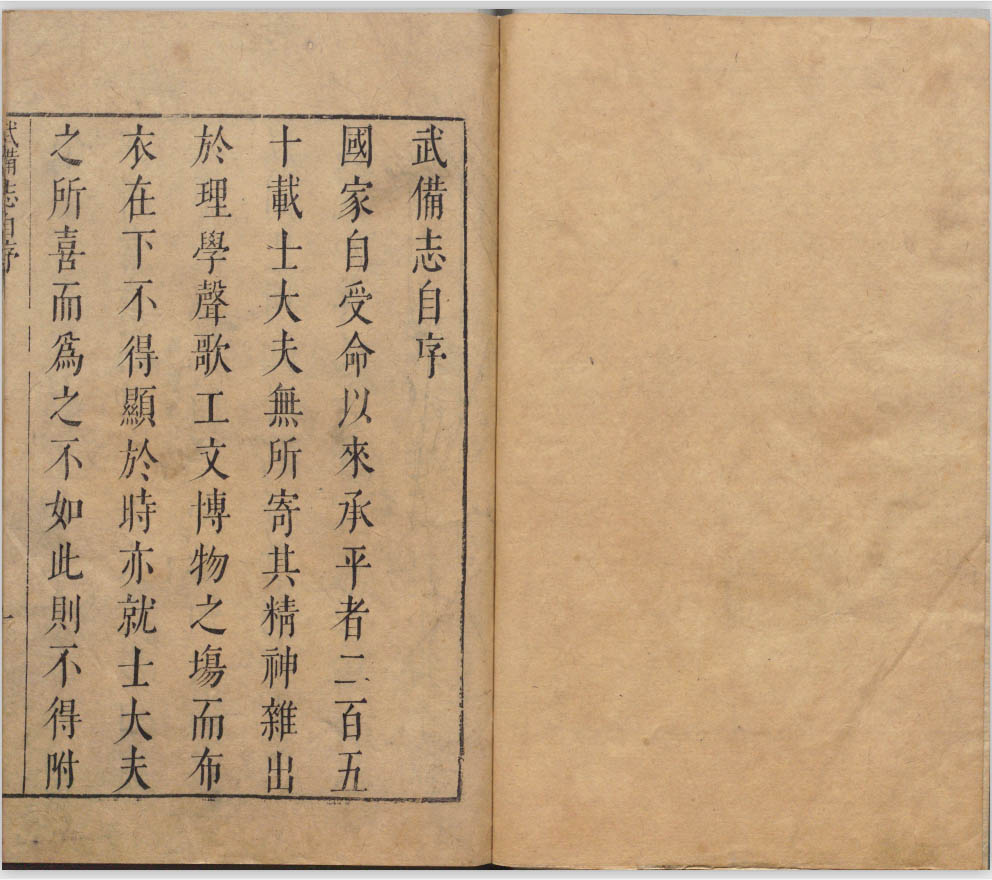 武備志自序
國家自受命以來承平者二百五
十載士大夫無所寄其精神雜出
於理學聲歌工文博物之場而布
衣在下不得顯於時亦就士大夫
之所喜而爲之不如此則不得附
武備志自序
一